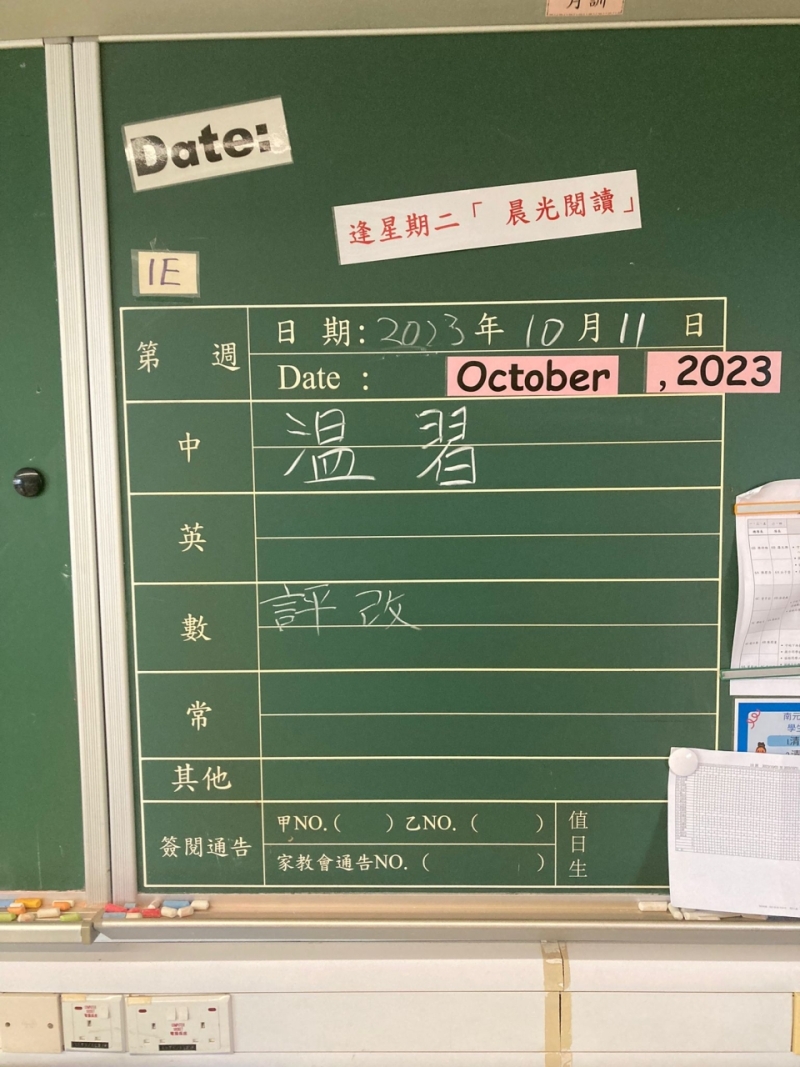 月訓
Date:
逢星期二「 晨光閱讀」
1E
第 週
日 期: 2023年 10月11 日
Date : October , 2023
中 溫習
英
數 評改
常
其他
簽閱通告
甲NO.( )乙NO. ( )
家教會通告NO. ( )
值日生